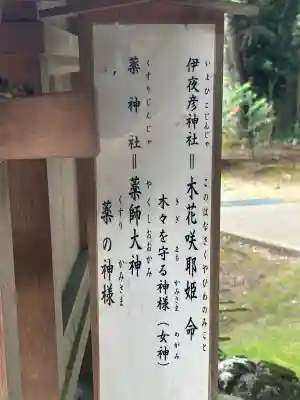 伊夜彦神社＝木花咲耶姫命
いよひこじんじゃ このはなさくやひめのみこと
木々を守る神様（女神）
きぎ まも かみさま めがみ
薬神社＝薬師大神
くすりじんじゃ やくしおおかみ
薬の神様
くすり かみさま